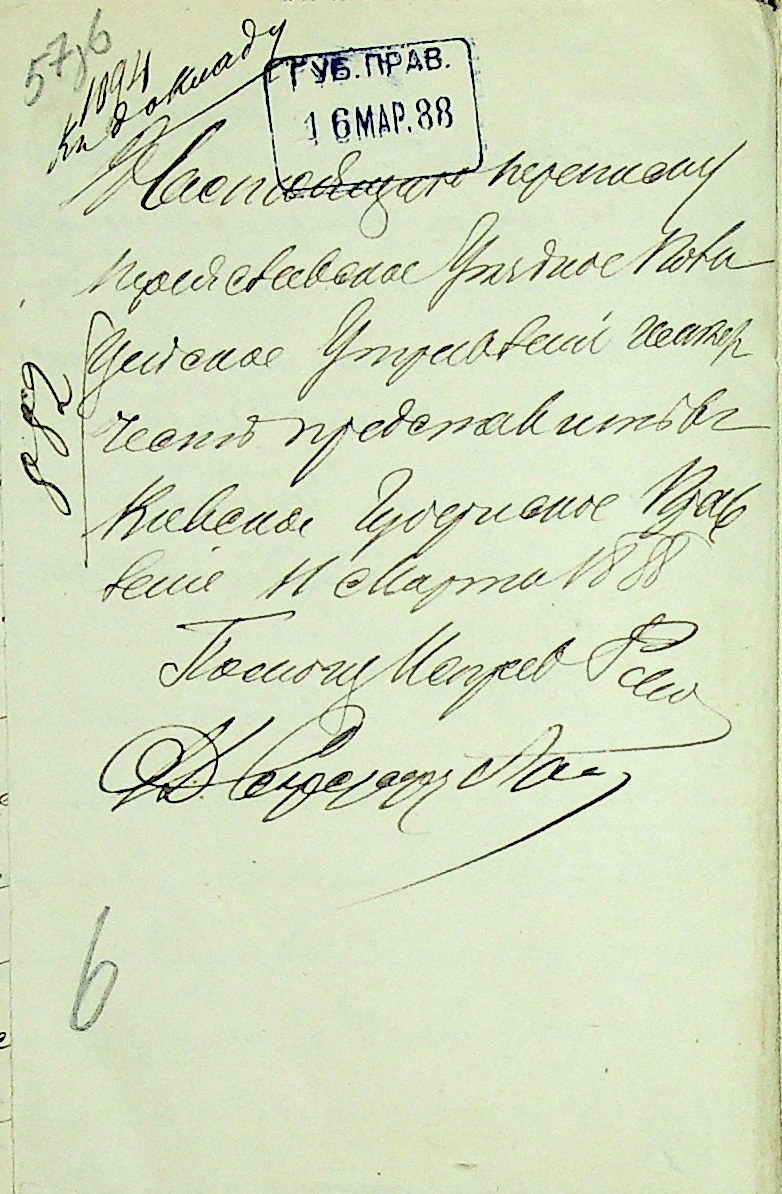 57,6
1094
Къ докладу
ГУБ. ПРАВ.
16 МАР. 88
Настоящую переписку
Уѣздное Поли
882
цейское Управленіе имѣетъ
честь представить въ
Кіевское Губернское Прав
леніе 11 Марта 1888
Помощ Исправ
Секретарь
6